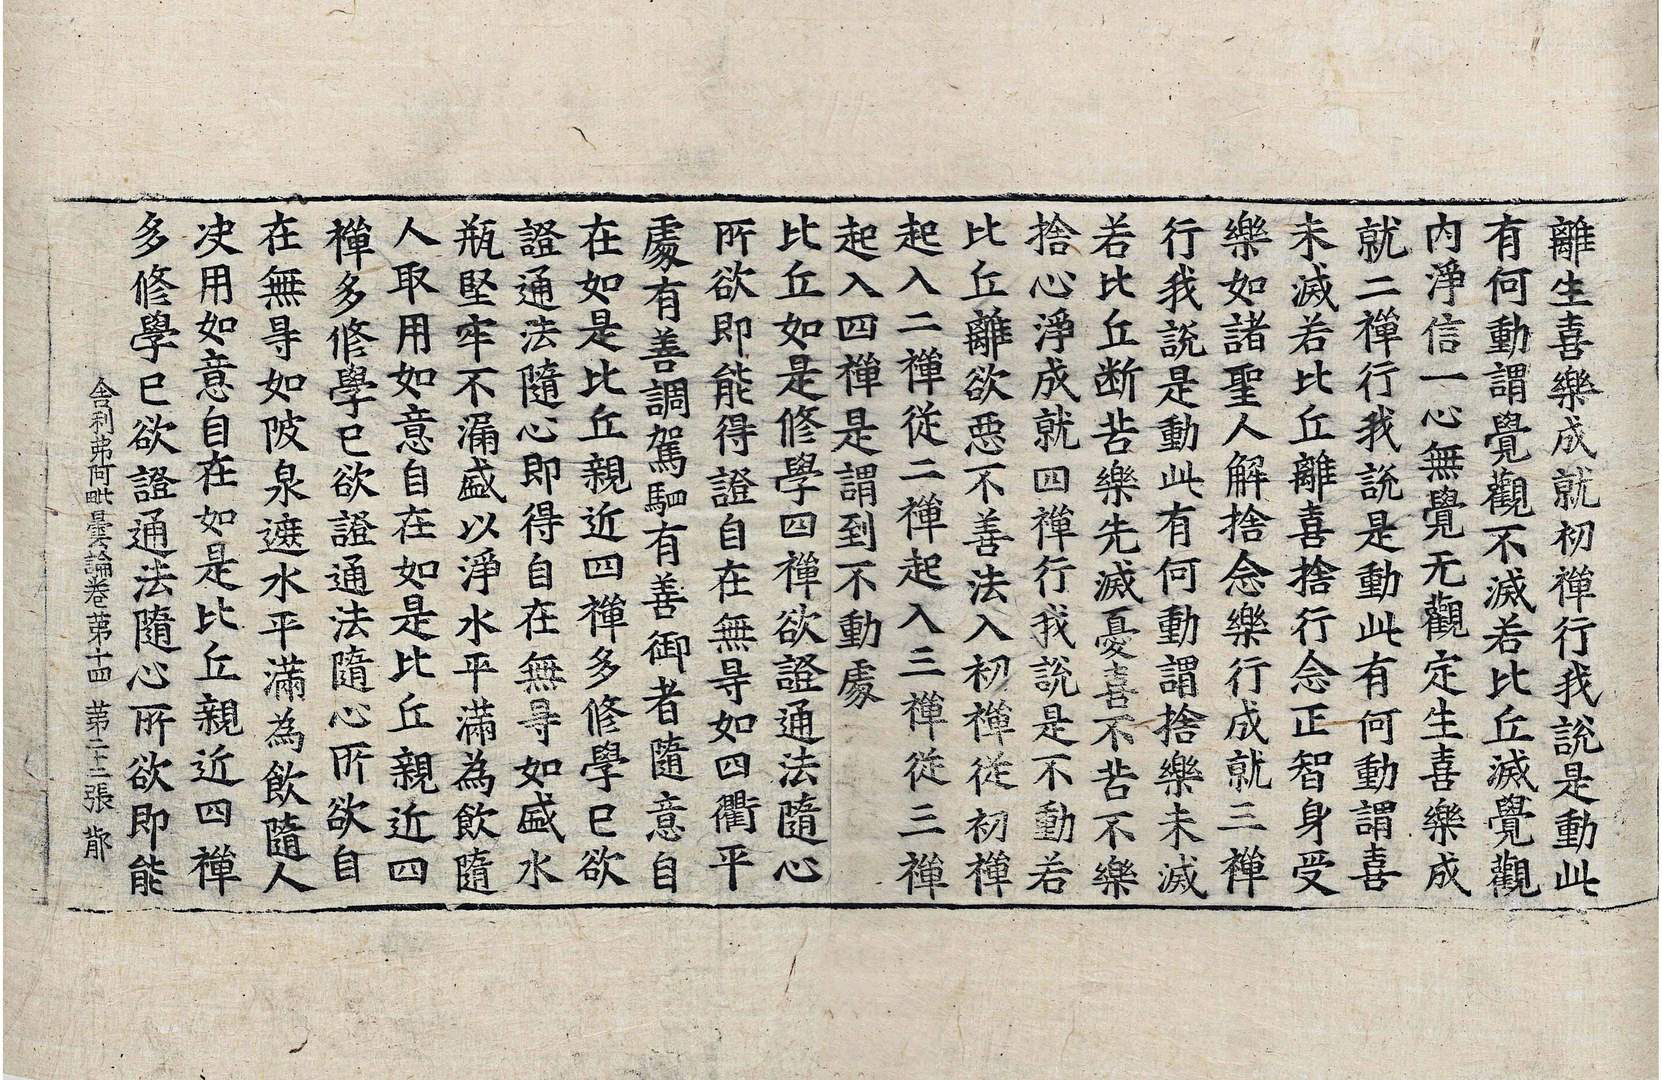 離生喜樂成就初禪行我說是動此
有何動謂覺觀不滅若比丘滅覺觀
內淨信一心無覺无觀定生喜樂成
就二禪行我說是動此有何動謂喜
未滅若比丘離喜捨行念正智身受
樂如諸聖人解捨念樂行成就三禪
行我說是動此有何動謂捨樂未滅
若比丘断苦樂先滅憂喜不苦不樂
捨心淨成就四禪行我說是不動若
比丘離欲惡不善法入初禪從初禪
起入二禪從二禪起入三禪從三禪
起入四禪是謂到不動處
比丘如是修學四禪欲證通法隨心
所欲即能得證自在無㝵如四衢平
處有善調駕駟有善御者隨意自
在如是比丘親近四禪多修學已欲
證通法隨心即得自在無㝵如盛水
瓶堅牢不漏盛以淨水平滿為飲隨
人取用如意自在如是比丘親近四
禪多修學已欲證通法隨心所欲自
在無㝵如陂泉遮水平滿為飲隨人
决用如意自在如是比丘親近四禪
多修學已欲證通法隨心所欲即能
舍利弗阿毗曇論卷第十四 第二十二張